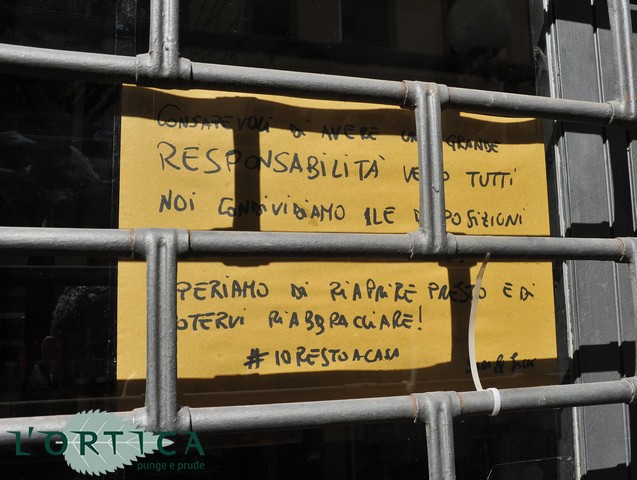 CONSAPEVOLI DI AVERE UNA GRANDE
RESPONSABILITÀ VERSO TUTTI
NOI CONDIVIDIAMO LE DISPOSIZIONI
SPERIAMO DI RIAPRIRE PRESTO E DI
POTERVI RIABBRACCIARE!
#IORESTOACASA
L'ORTICA
punge e prude